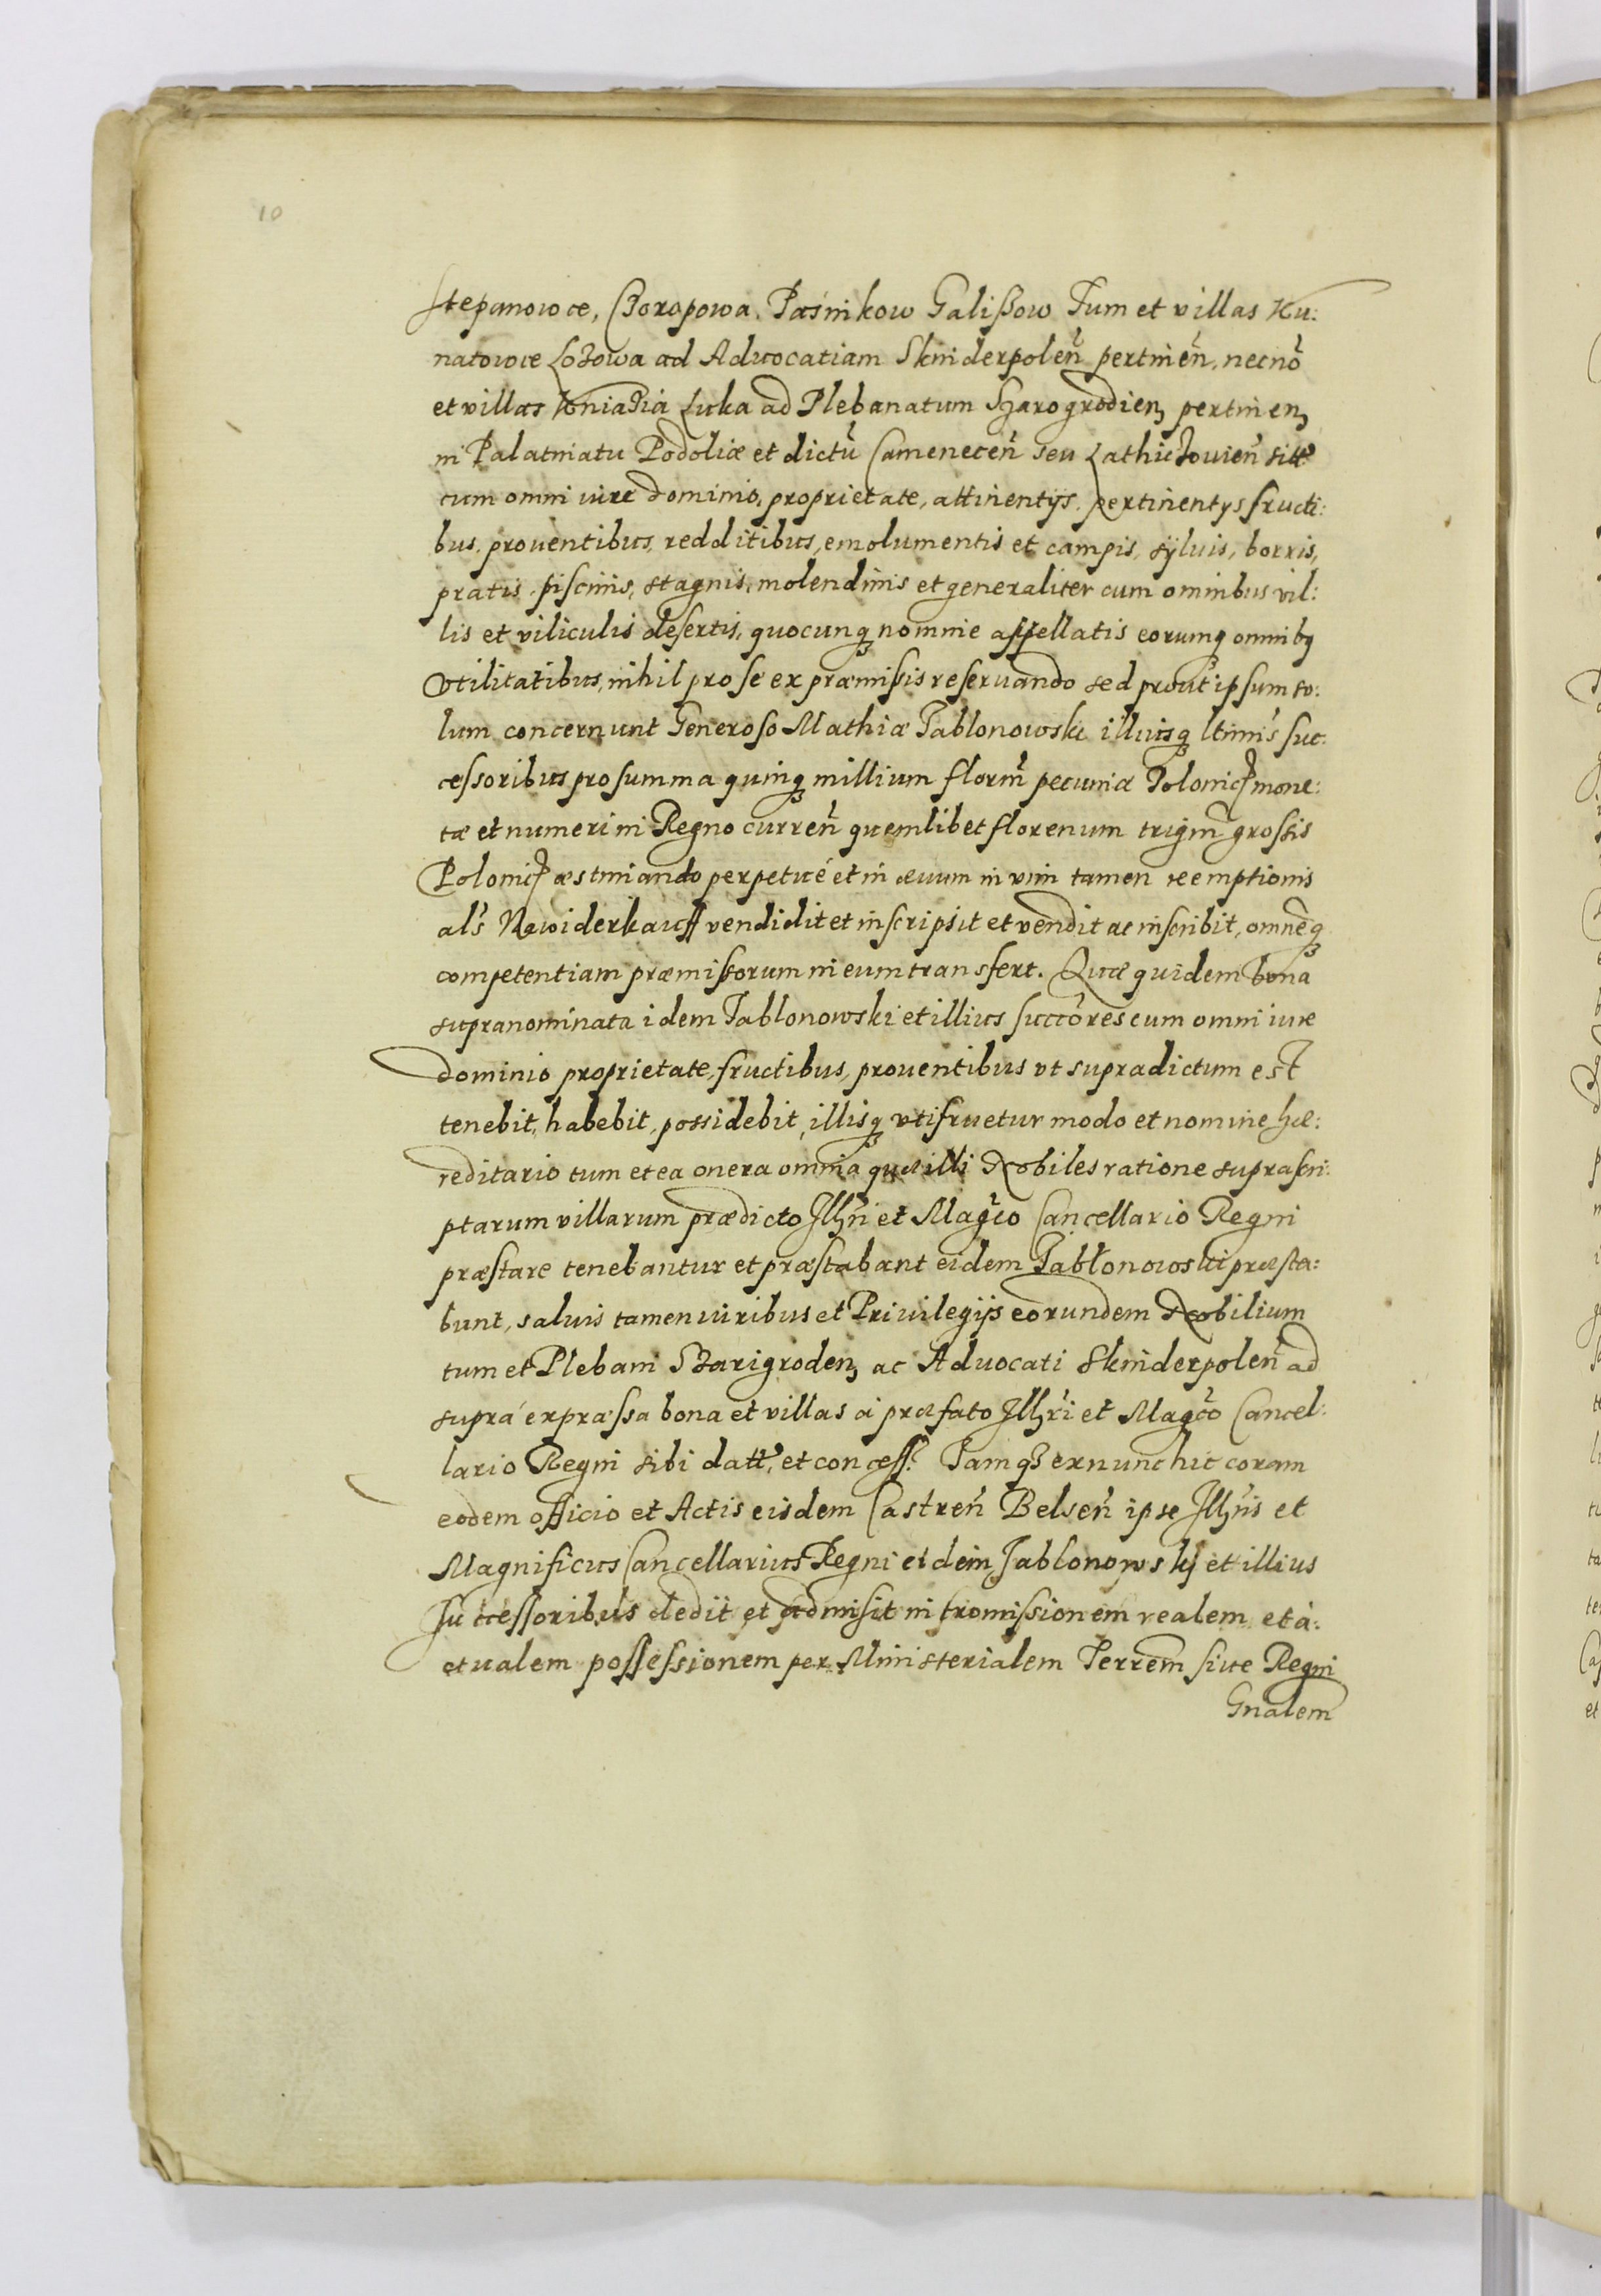 10
Stepanowce, Czoropowa, Paśnikow Galißow Tum et villas Ku:
natowce Łozowa ad Aduocatiam Skinderpoleñ pertineñ, necnõ
et villas Kniaźia Łuka ad Plebanatum Szarogrodien, pertinen,
in Palatinatu Podoliæ et dictũ Cameneceñ seu Lathiczouieñ sitt.
cum omni iure dominio, proprietate, attinentijs, pertinentys fructi:
bus, prouentibus, redditibus, emolumentis et campis, syluis, borris,
pratis, piscinis, stagnis, molendinis et generaliter cum omnibus vil:
lis et viliculis desertis, quocunq nomine appellatis eorumq omnibq
Vtilitatibus, nihil pro se ex præmissis reseruando sed prout ipsum so:
lum concernunt Generoso Mathiæ Jablonowski illiusq ltimis suc:
cessoribus pro summa quinq millium florm̃ pecuniæ Polonic mone:
tæ et numeri in Regno curreñ quemlibet florenum trigin̄ grossis
Polonic æstimando perpetué et in æuum in vim tamen reemptionis
als Nawiderkauff vendidit et inscripsit et vendit ac inscribit, omnẽq
competentiam præmissorum in eum transfert. Quæ quidem bona
supranominata idem Jablonowski et illius succõres cum omni iure
dominio proprietate, fructibus, prouentibus vt supradictum est
tenebit, habebit, possidebit, illisq vtifruetur modo et nomine hæ:
reditario tum et ea onera omnia quæ illi Nobiles ratione suprascri:
ptarum villarum prædicto Jllri et Magco Cancellario Regni
præstare tenebantur et præstabant eidem Jabłonowski præsta:
bunt, saluis tamen iuribus et Priuilegijs eorundem Nobilium
tum et Plebani Szarigroden, ac Aduocati Skinderpoleñ ad
suprá expræssa bona et villas á præfato Jllri et Magco Cancel:
lario Regni sibi datt. et concess. Jamqz ex nunc hic coram
eodem officio et Actis eisdem Castreñ Belseñ ipse Jllris et
Magnificus Cancellarius Regni eidem Jablonowskj et illius
Successoribus dedit et admisit intromissionem realem et á:
ctualem possessionem per Ministerialem Terrem̃ siue Regni
Gnalem